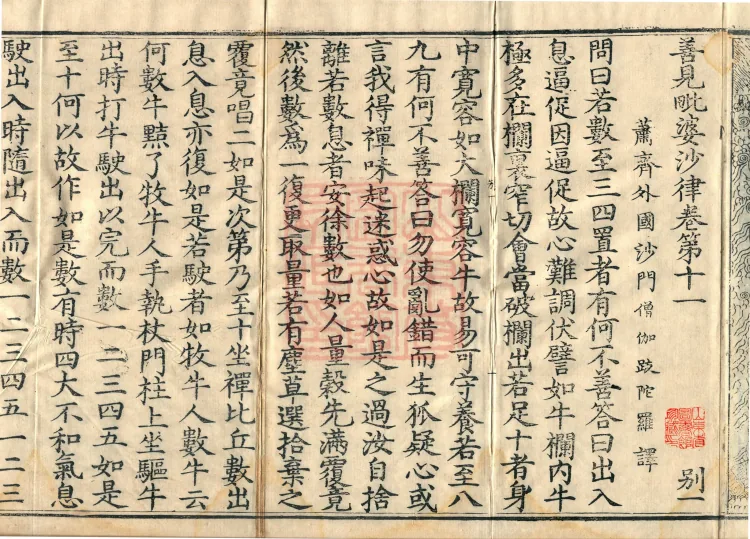 善見毗婆沙律卷第十一
別一
蕭齊外國沙門僧伽跋陀羅譯
問曰若數至三四置者有何不善答曰出入
息逼促因逼促故心難調伏譬如牛欄內牛
極多在欄裏窄切會當破欄出若足十者身
中寬容如大欄寬容牛故易可守養若至八
九有何不善答曰勿使亂錯而生狐疑心或
言我得禪味起迷惑心故如是之過汝自捨
離若數息者安徐數也如人量穀先滿覆竟
然後數爲一復更取量若有塵草選拾棄之
覆竟唱二如是次第乃至十坐禪比丘數出
息入息亦復如是若駛者如牧牛人數牛云
何數牛黠了牧牛人手執杖門柱上坐驅牛
出時打牛駛出以完而數一二三四五如是
至十何以故作如是數有時四大不和氣息
駛出入時隨出入而數一二三四五一二三